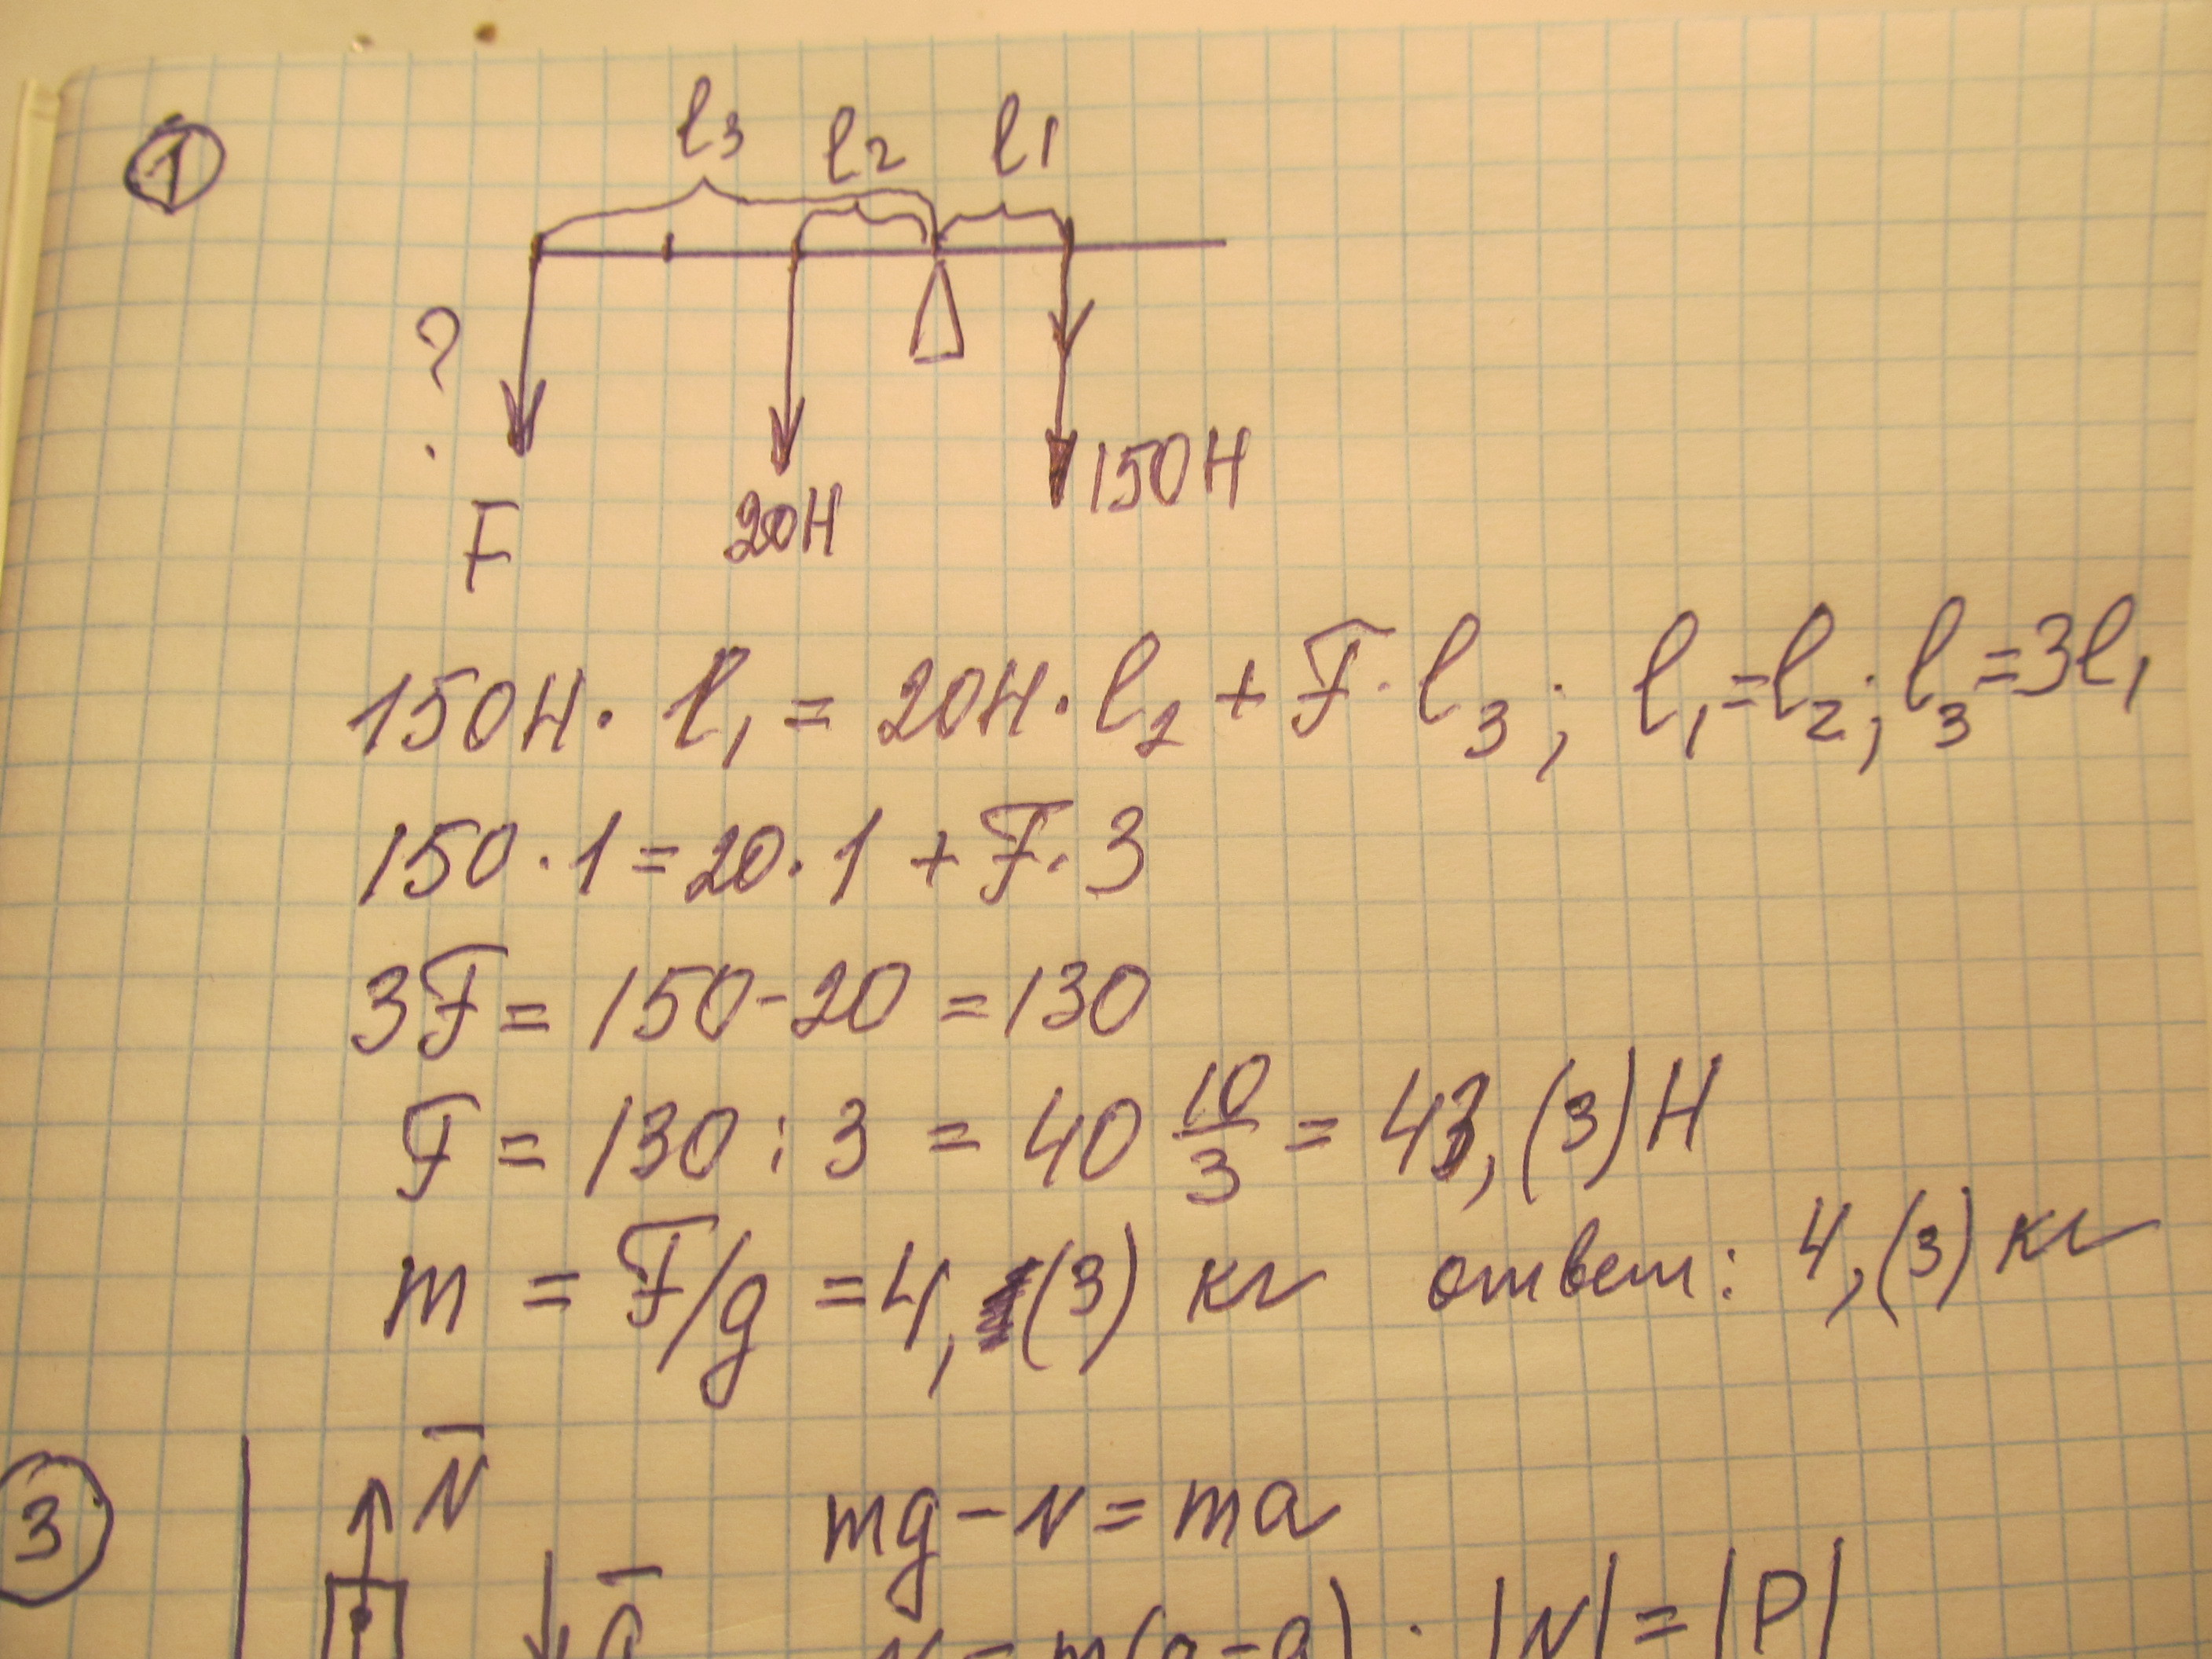 1
l3 l2 l1
?
F 20Н 150Н
150Н · l1 = 20Н · l2 + F · l3; l1 = l2; l3 = 3l1
150 · 1 = 20 · 1 + F · 3
3F = 150 - 20 = 130
F = 130 : 3 = 40 10/3 = 43,(3) Н
m = F/g = 4,(3) кг ответ: 4,(3) кг
3 N̄ mg - N = ma
ā |N| = |P|